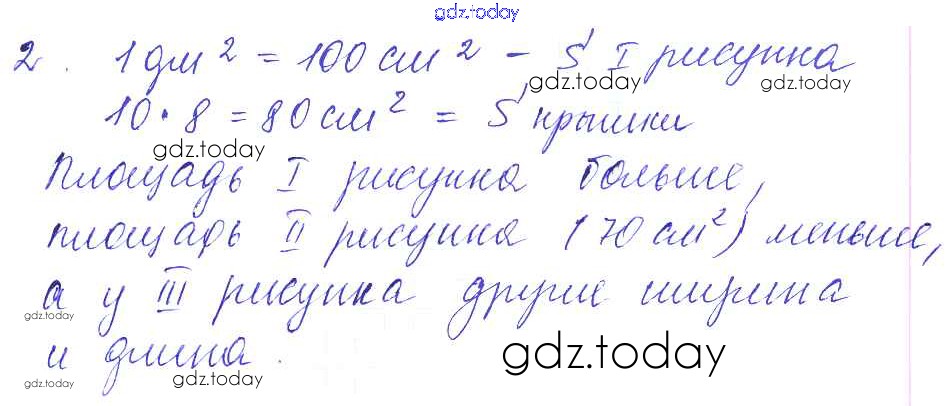 gdz.today
2. 1 дм² = 100 см² - S I рисунка
gdz.today gdz.today
10 · 8 = 80 см² = S крышки
gdz.today
Площадь I рисунка больше,
площадь II рисунка (70 см²) меньше,
а у III рисунка другие ширина
gdz.today
и длина.
gdz.today
gdz.today gdz.today